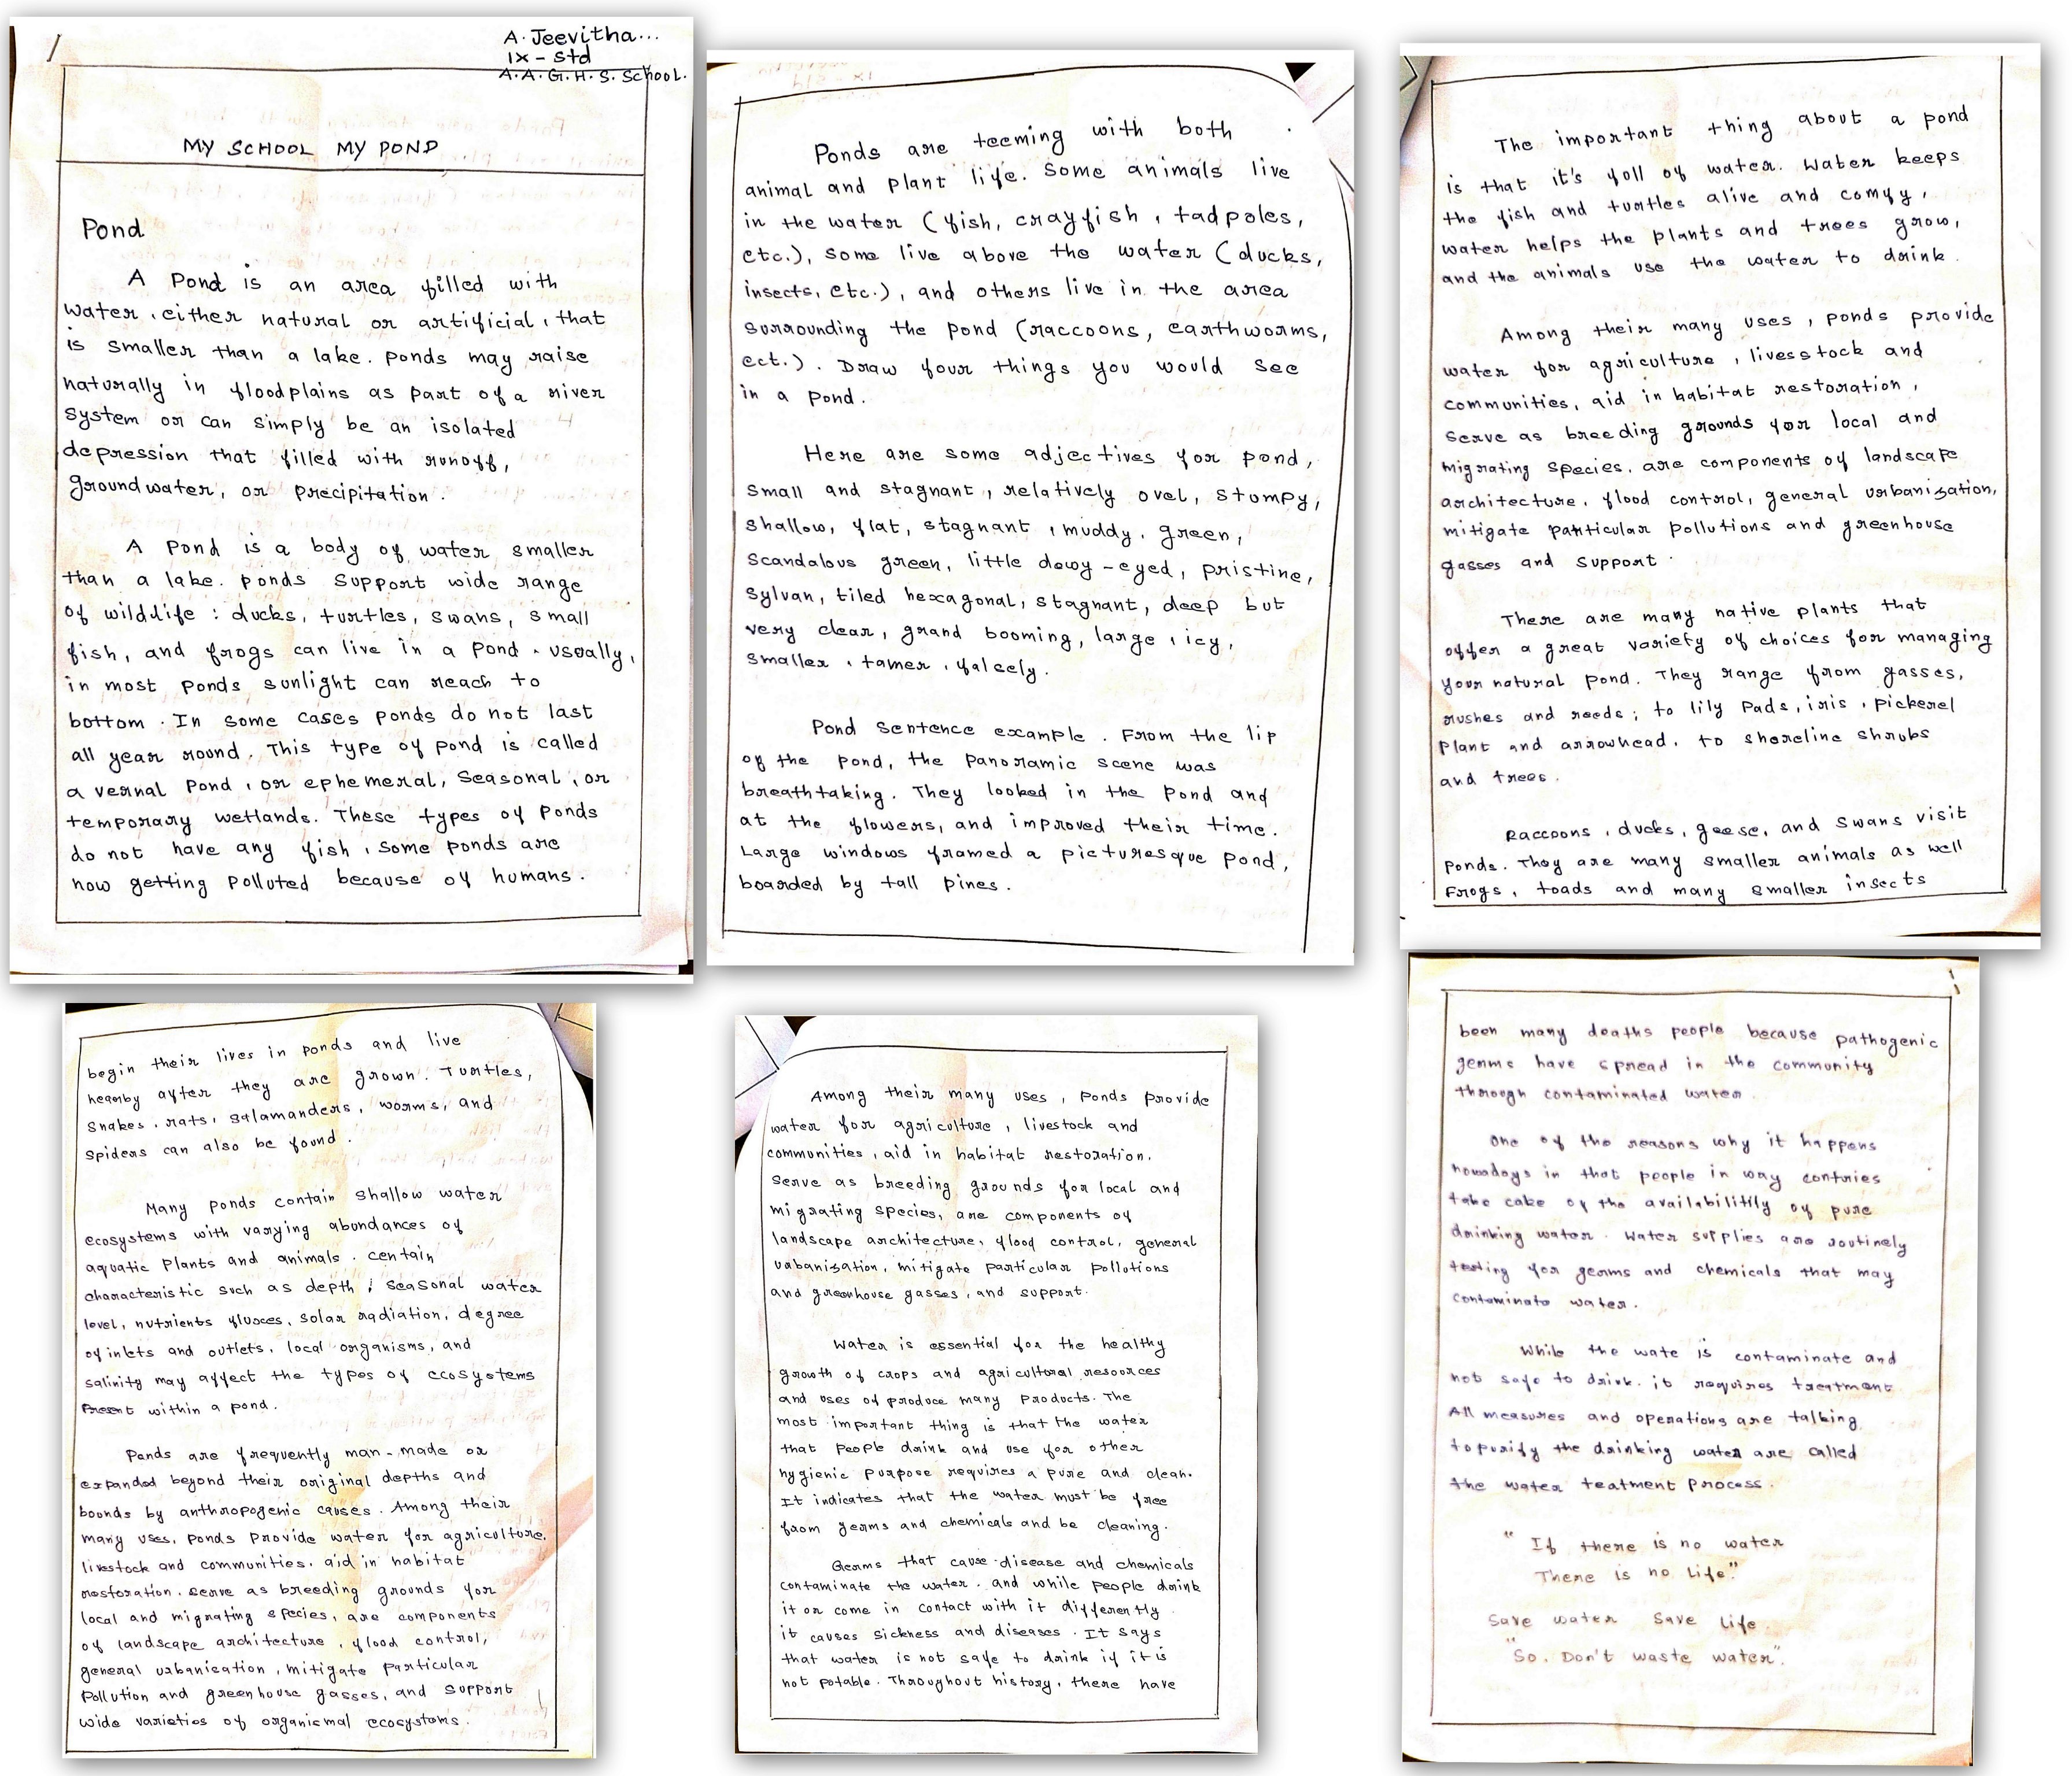 A. Jeevitha...
IX - Std
A.A.G.H.S. School.
MY SCHOOL MY POND
Pond
A Pond is an area filled with
water, either natural or artificial, that
is smaller than a lake. Ponds may raise
naturally in floodplains as part of a river
system or can simply be an isolated
depression that filled with runoff,
groundwater, or precipitation.
A Pond is a body of water smaller
than a lake. Ponds support wide range
of wildlife : ducks, turtles, swans, small
fish, and frogs can live in a pond. usually,
in most ponds sunlight can reach to
bottom. In some cases ponds do not last
all year round. This type of pond is called
a vernal Pond, or ephemeral, seasonal, or
temporary wetlands. These types of ponds
do not have any fish, some ponds are
now getting Polluted because of humans.
Ponds are teeming with both
animal and plant life. Some animals live
in the water (fish, crayfish, tadpoles,
etc.), some live above the water (ducks,
insects, etc.), and others live in the area
surrounding the pond (raccoons, earthworms,
ect.). Draw four things you would see
in a pond.
Here are some adjectives for pond,
small and stagnant, relatively ovel, stumpy,
shallow, flat, stagnant, muddy, green,
scandalous green, little dewy-eyed, pristine,
sylvan, tiled hexagonal, stagnant, deep but
very clear, grand booming, large, icy,
smaller, tamer, falcely.
Pond sentence example. From the lip
of the pond, the panoramic scene was
breathtaking. They looked in the Pond and
at the flowers, and improved their time.
Large windows framed a picturesque pond,
boarded by tall pines.
The important thing about a pond
is that it's foll of water. Water keeps
the fish and turtles alive and comfy,
water helps the plants and trees grow,
and the animals use the water to drink.
Among their many uses, ponds provide
water for agriculture, livesstock and
communities, aid in habitat restoration,
serve as breeding grounds for local and
migrating species, are components of landscape
architecture, flood control, general urbanisation,
mitigate particular pollutions and greenhouse
gasses and support.
There are many native plants that
offer a great variety of choices for managing
your natural pond. They range from gasses,
rushes and reeds; to lily pads, iris, pickerel
plant and arrowhead, to shoreline shrubs
and trees.
Raccoons, ducks, geese, and swans visit
ponds. They are many smaller animals as well
Frogs, toads and many smaller insects
begin their lives in ponds and live
nearby after they are grown. Turtles,
snakes, rats, salamanders, worms, and
spiders can also be found.
Many ponds contain shallow water
ecosystems with varying abundances of
aquatic plants and animals. certain
characteristic such as depth; seasonal water
level, nutrients fluxces, solar radiation, degree
of inlets and outlets, local organisms, and
salinity may affect the types of ecosystems
Present within a pond.
Ponds are frequently man-made or
expanded beyond their original depths and
bounds by anthropogenic causes. Among their
many uses, ponds provide water for agriculture,
livestock and communities, aid in habitat
restoration, serve as breeding grounds for
local and migrating species, are components
of landscape architecture, flood control,
general urbanisation, mitigate particular
Pollution and greenhouse gasses, and support
wide varieties of organismal ecosystems.
Among their many uses, Ponds provide
water for agriculture, livestock and
communities, aid in habitat restoration.
Serve as breeding grounds for local and
migrating species, are components of
landscape architecture, flood control, general
urbanisation, mitigate particular pollutions
and greenhouse gasses, and support.
Water is essential for the healthy
growth of crops and agricultural resources
and uses of produce many products. The
most important thing is that the water
that people drink and use for other
hygienic purpose requires a pure and clean.
It indicates that the water must be free
from germs and chemicals and be cleaning.
Germs that cause disease and chemicals
contaminate the water. and while people drink
it or come in contact with it differently
it causes sickness and diseases. It says
that water is not safe to drink if it is
not potable. Throughout history, there have
been many deaths people because pathogenic
germs have spread in the community
through contaminated water.
One of the reasons why it happens
nowadays in that people in way contries
take cake of the availabilitily of pure
drinking water. Water supplies are routinely
testing for germs and chemicals that may
contaminate water.
While the wate is contaminate and
not safe to drink. it requires treatment
All measures and operations are talking
to purify the drinking water are called
the water teatment process.
"If there is no water
There is no life."
Save water Save life.
"So, Don't waste water".